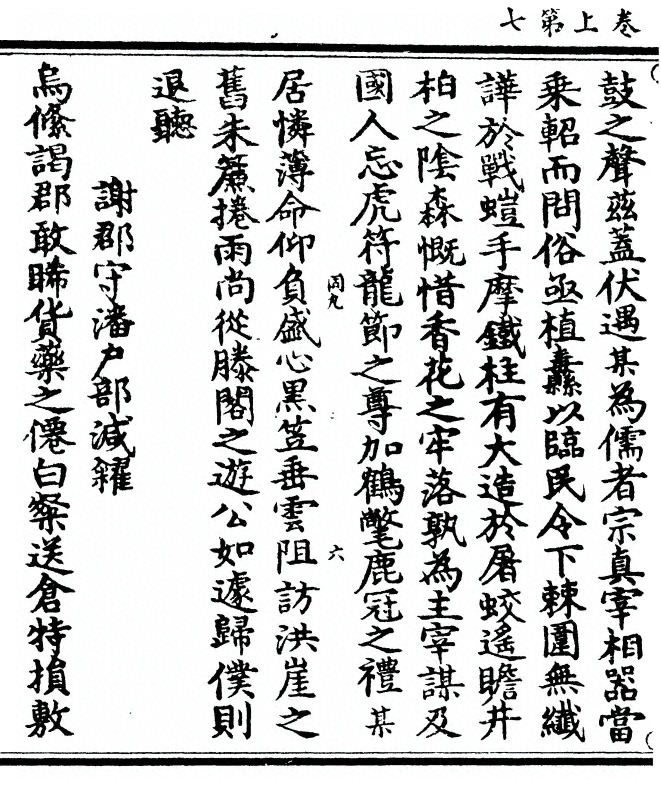 卷上第七
鼓之聲茲蓋伏遇某為儒者宗真宰相器當
乘軺而問俗亟植纛以臨民令下棘圍無纖
譁於戰螘手摩鐵柱有大造於屠蛟遙瞻井
柏之陰森慨惜香花之牢落孰為主宰謀及
國人忘虎符龍節之尊加鶴氅鹿冠之禮某
閏九
六
居憐薄命仰負盛心黑笠垂雲阻訪洪崖之
舊朱簾捲雨尚從滕閣之遊公如遽歸僕則
退聽
謝郡守潘户部減糴
烏絛謁郡敢晞貨藥之僊白粲送倉特損敷